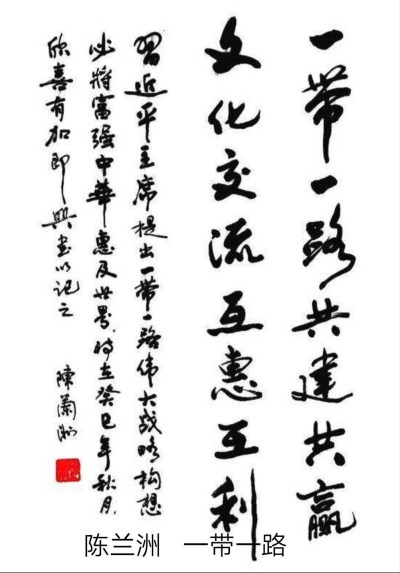 一带一路共建共赢
文化交流互惠互利
習近平主席提出一带一路伟大战略构想
必將富强中華惠及世界，时在癸巳年秋月，
欣喜有加即興书以记之
陳蘭洲
陈兰洲 一带一路